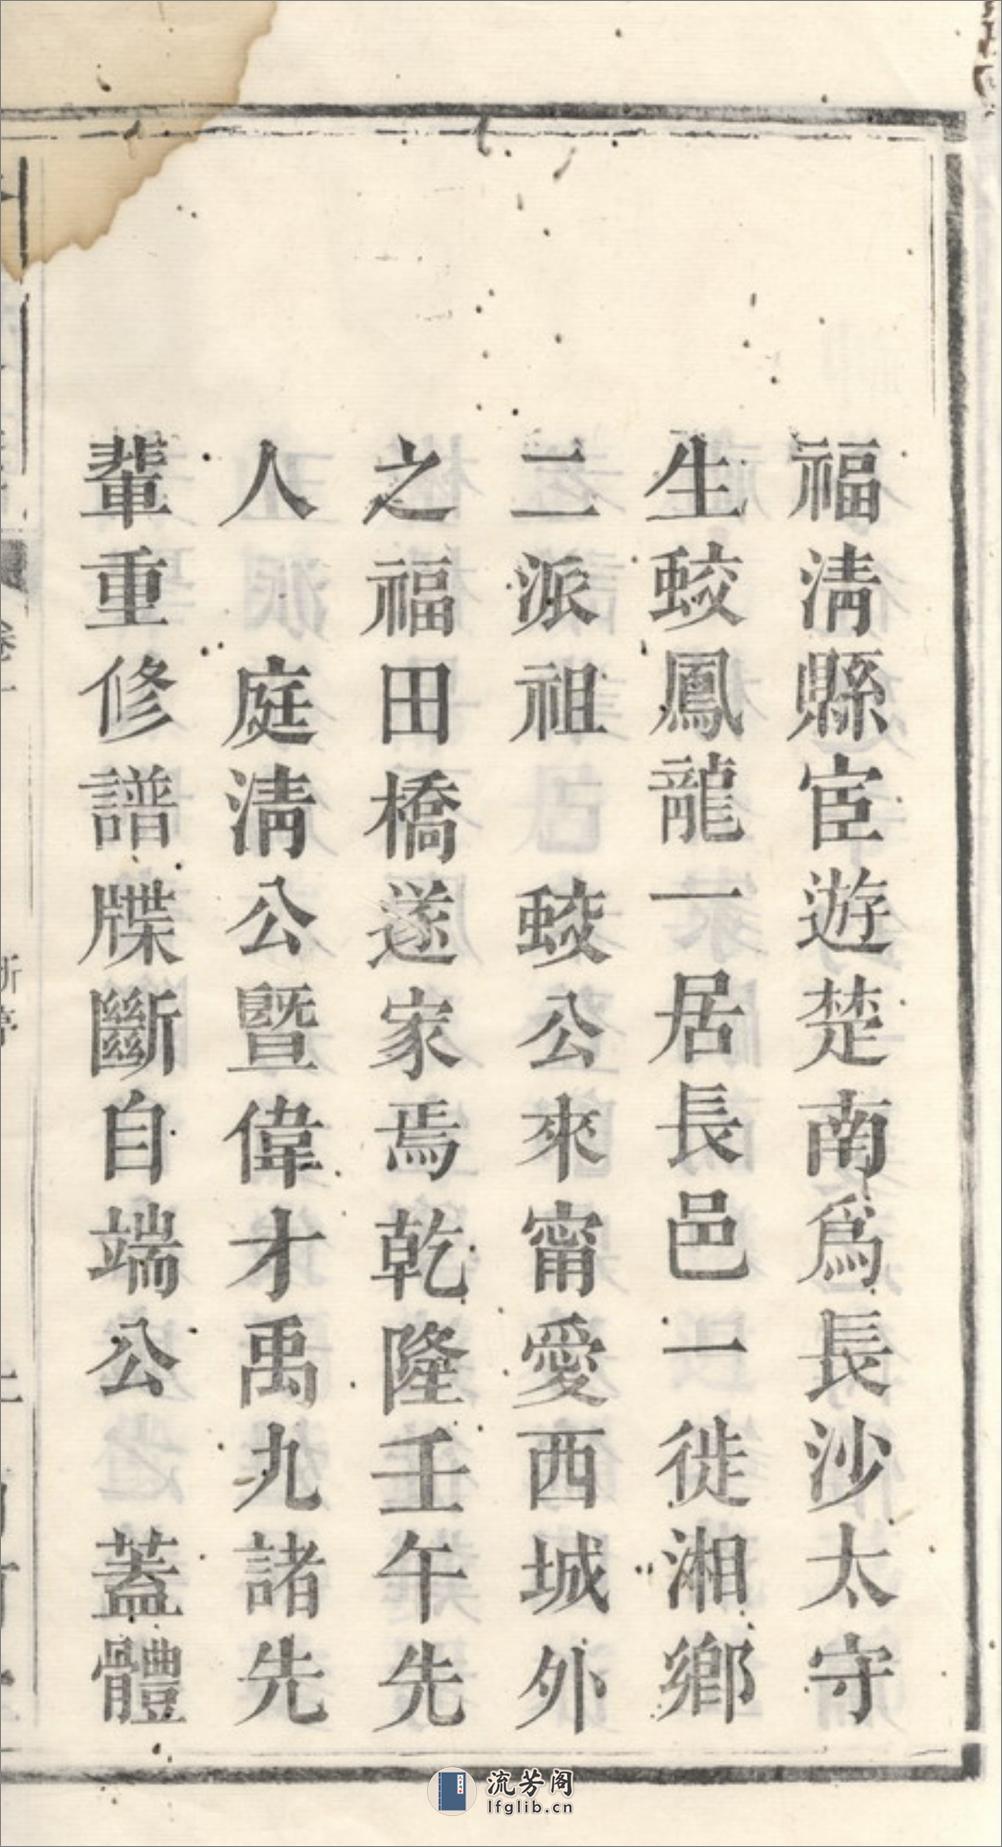 福淸縣宦遊楚南爲長沙太守
生蛟鳳龍一居長邑一徙湘鄉
二派祖　蛟公來甯愛西城外
之福田橋遂家焉乾隆壬午先
人　庭淸公暨偉才禹九諸先
輩重修譜牒斷自端公　蓋體
卷一
流芳阁
lfglib.cn